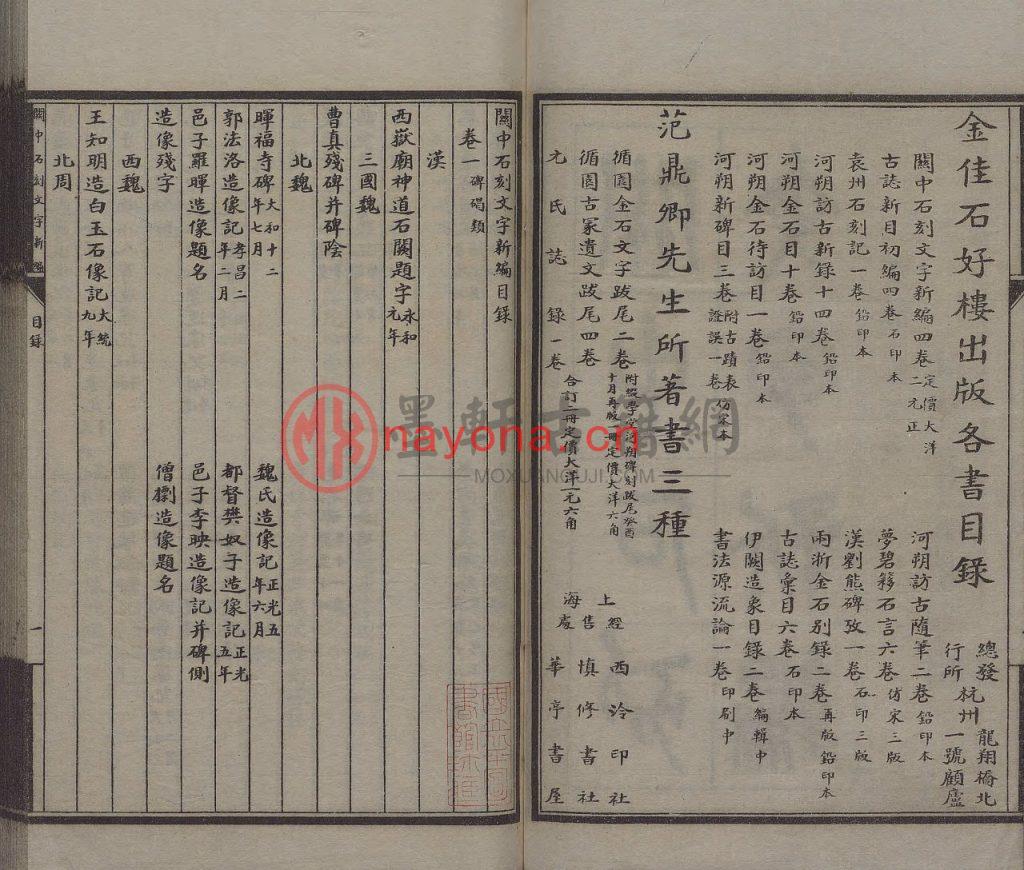 金佳石好樓出版各書目錄
總發行所杭州龍翔橋北一號顧廬
關中石刻文字新編四卷定價大洋二元正
河朔訪古隨筆二卷鉛印本
古誌新目初編四卷石印本
夢碧簃石言六卷仿宋三版
袁州石刻記一卷鉛印本
漢劉熊碑攷一卷石印三版
河朔訪古新錄十四卷鉛印本
兩浙金石別錄二卷再版鉛印本
河朔金石目十卷鉛印本
古誌彙目六卷石印本
河朔金石待訪目一卷鉛印本
伊闕造象目錄二卷編輯中
河朔新碑目三卷附古蹟表證誤一卷仿宋本
書法源流論一卷印刷中
范鼎卿先生所著書三種
循園金石文字跋尾二卷
附綴學堂河朔碑刻跋尾癸酉十月再版一冊定價大洋六角
循園古冢遺文跋尾四卷
元氏誌錄一卷
合訂二冊定價大洋一元六角
上海
經售處
西泠印社
慎修書社
華亭書屋
關中石刻文字新編目錄
卷一碑碣類
漢
西嶽廟神道石闕題字永和元年
三國魏
曹真殘碑并碑陰
北魏
暉福寺碑大和十二年七月
魏氏造像記正光五年六月
郭法洛造像記孝昌二年二月
都督樊奴子造像記正光五年
邑子羅暉造像題名
邑子李映造像記并碑側
造像殘字
僧㯹造像題名
西魏
王知明造白玉石像記大統九年
北周
關中石刻文字新編
目錄
一
墨軒古籍網
nayona.cn
MOXUANGUJI.COM